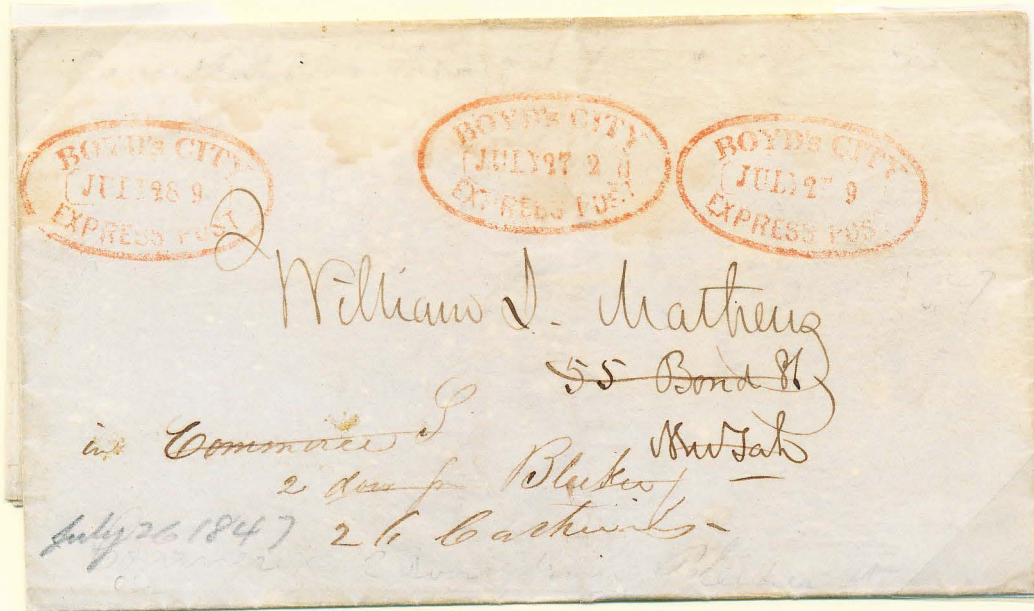 BOYD'S CITY
JULY 28 9
EXPRESS POST
BOYD'S CITY
JULY 27 2
EXPRESS POST
BOYD'S CITY
JULY 27 9
EXPRESS POST
William I. Mathews
55 Bond St
New York
in Commerce S
2 doors fm Bleeker
26
July 26 1847